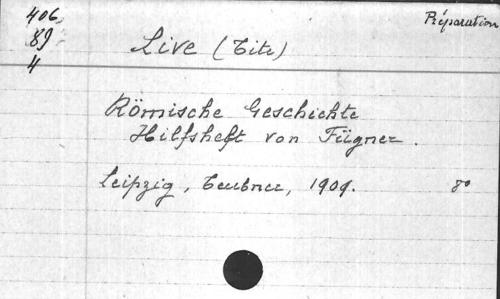 406,
Préparation
89
4
Live (Tite)
Römische Geschichte
Hilfsheft von Fügner.
Leipzig, Teubner, 1909. 8°